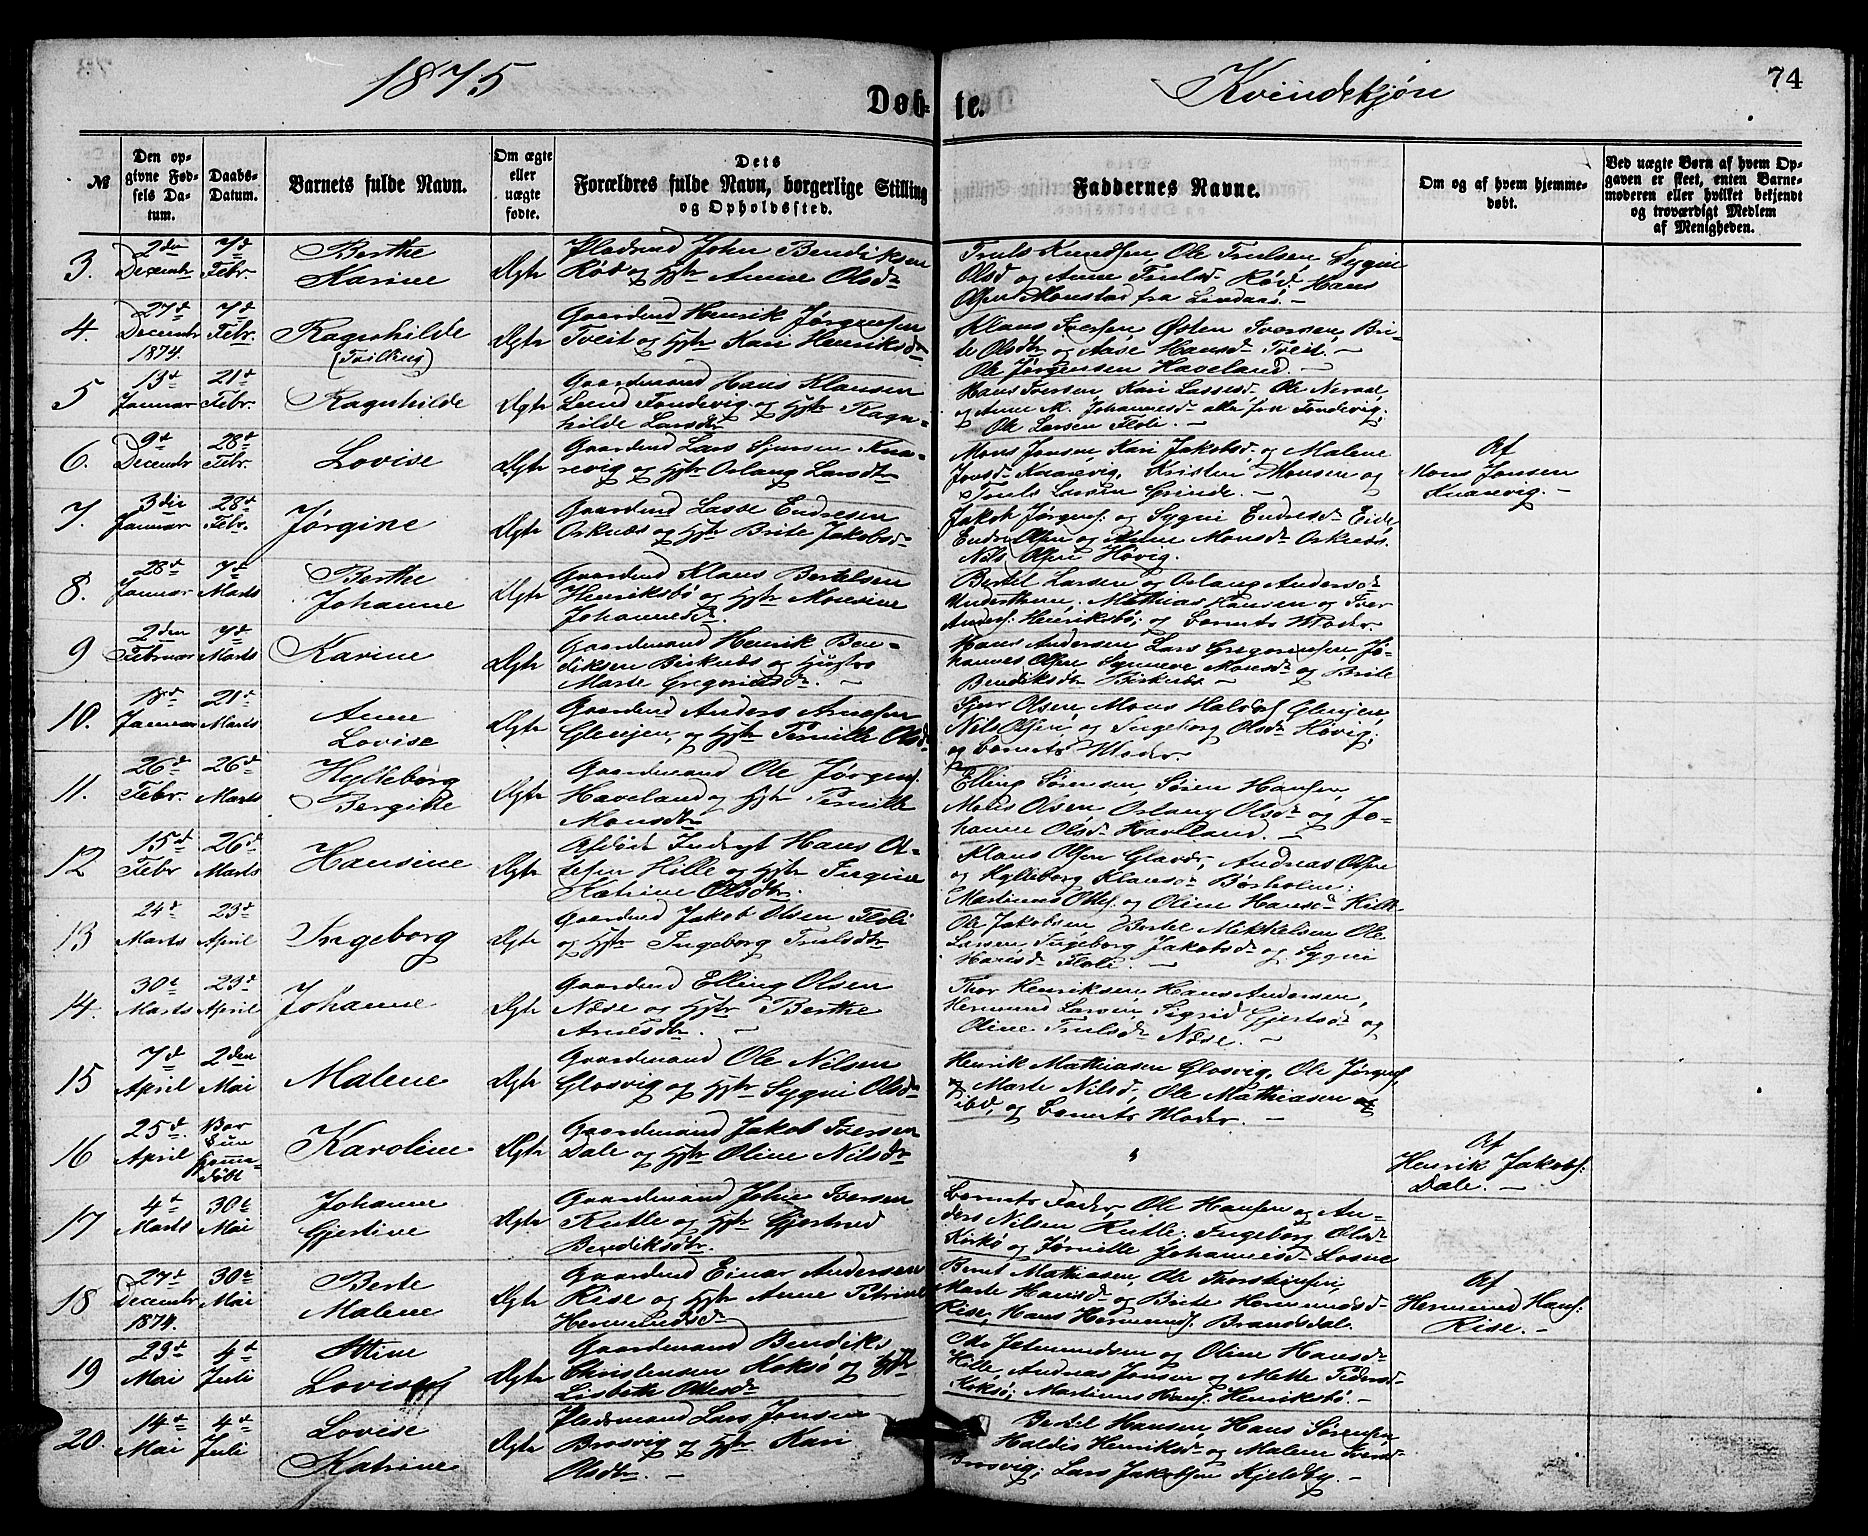 1875
Döb-te.
Kvindekjøn
74
№
Den opgivne Fødsels Datum.
Daabs-Datum.
Barnets fulde Navn.
Om ægte eller uægte fødte.
Dets Forældres fulde Navn, borgerlige Stilling og Opholdssted.
Faddernes Navne.
Om og af hvem hjemmedøbt.
Ved uægte Børn af hvem Opgaven er skeet, enten Barnemoderen eller hvilket bekjendt og troværdigt Medlem af Menigheden.
3. 2den Decembr 7d Febr. Berthe Karine Ægte
Pladsmd John Bendiksen
Röd og Hstr Anne Olsdr
Truls Knudsen, Ole Trulsen, Sygni
Olsd og Anne Trulsd Röd. Hans
Olsen Monstad fra Lindaas. –
4. 27d Decembr 1874. 7d Febr. Ragnhilde (Tvilling) Ægte
Gaardmd Henrik Jørgensen
Tveit og Hstr Kari Henriksdr
Klaus Iversen, Østen Iversen, Bri-
te Olsdtr og Aase Hansdr Tveit. –
Ole Jørgensen Haveland. –
5 13d Januar 21d Febr. Ragnhilde Ægte
Gaardmand Hans Klausen
Leend Fondevig og Hstr Ragn-
hilde Larsdtr
Hans Iversen, Kari Lassesd, Ole
og Anne M. Johannesdr alle fra Fondevig.
Ole Larsen Floli. –
6. 9d Decembr 28d Febr. Lovise Ægte
Gaardmd Lars Sjursen Kna-
revig og Hstr Orlaug Larsdtr
Mons Jonsen, Kari Jakobsd, og Malene
Jonsd Knarevig, Kristen Monsen og
Truls Larsen Grinde. –
Af
Mons Jonsen
Knarevig. –
7. 3die Januar 28d Febr. Jørgine Ægte
Gaardmd Lasse Endresen
Oskneds og Hstr Brite Jakobsdr
Jakob Jørgens. og Sygni Endresdr Eide,
Endre Olsen og Anne Monsdr
Nils Olsen Hovig.
8. 28d Januar 7d Marts Berthe Johanne Ægte
Gaardmd Klaus Bertelsen
Henriksbö og Hstr Monsine
Johannesdr.
Bertel Larsen og Orlaug Andersdr
Mathias Hansen og Iver
Anders. Henriksbö; og Barnets Moder.
9 2den Februar 7d Marts Karine Ægte
Gaardmand Henrik Ben-
diksen Birknes og Hustro
Marte Gregoriusdr. –
Hans Andersen, Lars Gregoriussen, Jo-
hannes Olsen, Synneve Monsdr og Brite
Bendiksdtr Birknes –
10. 18d Januar 21d Marts Anne Lovise Ægte
Gaardmd Anders Arnesen
Glenjen, og Hstr Pernille Olsdr
Sjur Olsen, Mons Glenjen,
Nils Olsen, og Ingeborg Olsdr Hovig;
og Barnets Moder.
11. 26d Febr. 26d Marts Hylleborg Bergitte Ægte
Gaardmand Ole Jørgens.
Haveland og Hstr Pernille
Monsdtr
Elling Sørensen, Søren Hansen,
Mons Olsen, Orlaug Olsdr og Jo-
hanne Olsdr Havlland. –
12 15d Febr 26d Marts Hansine Ægte
Afdöde Inderst Hans Ol-
Hille og Hstr Jirgine
Katrine Olsdtr.
Klaus Olsen Glavær, Andreas Olsen
og Hylleborg Klausdr Børholm;
Martinus Ottes. og Oline Hansdr Hille.
13 24d Marts 23d April Ingeborg Ægte
Gaardmd Jakob Olsen Floli
og Hstr Ingeborg Trulsdtr
Ole Jakobsen, Bertel Mikkelsen, Ole
Larsen, Ingeborg Jakobsdr og Sygni
Hansdr Floli. –
14. 30d Marts 23d April Johanne Ægte
Gaardmd Elling Olsen
Næse og Hstr Berthe
Arnesdtr. –
Thor Henriksen, Hans Andersen,
Hermund Larsen, Sigrid Gjertsdr og
Oline Trulsdr Næse. –
15 7d April 2den Mai Malene Ægte
Gaardmand Ole Nilsen
Glosvig og Hstr Sygni Olsdr
Henrik Mathiasen Glosvig, Ole Jørgens.
og Marte Nilsd, Ole Mathiasen og
ibd, og Barnets Moder. –
16 25d April Karoline Ægte
Gaardmand Jakob Iversen
Dale og Hstr Oline Nilsdr
Af
Henrik Jakobs.
Dale. –
17 4d Marts 30d Mai Johanne Gjertine Ægte
Gaardmand John Iversen
Rutle og Hstr Gjertrud
Bendiksdtr.
Barnets Fader, Ole Hansen og An-
ders Nilsen Rutle, Ingeborg Olsdr
Kirkö og Johannesdr Losne
18 27d Decembr 1874. 30d Mai Berte Malene Ægte
Gaardmd Einar Andersen
Rise og Hstr Anne Petrine
Hermundsdr
Bernt Mathiasen, Ole
Marte Hansdr og Brite Hermundsdr
Rise, Hans Hermunds. Brandsdal.
Af
Hermund Hans.
Rise. –
19 29d Mai 4d Juli Stine Lovise Ægte
Gaardmand Bendiks
Christensen Koksö og Hstr
Lisbeth Ottesdr
Otto Jetmundsen og Oline Hansdr
Hille, Andreas Jonsen og Mette Pedersdr
Koksö; Martinus Hans. Henriksbö. –
20. 14d Mai 4d Juli Lovise Katrine Ægte
Pladsmand Lars Jonsen
Brosvig og Hstr Kari
Olsdtr. –
Bertel Hansen, Hans Sørensen,
Haldis Henriksdr og Malene Iversdr
Brosvig; Lars Jakobsen Kjeldby. –